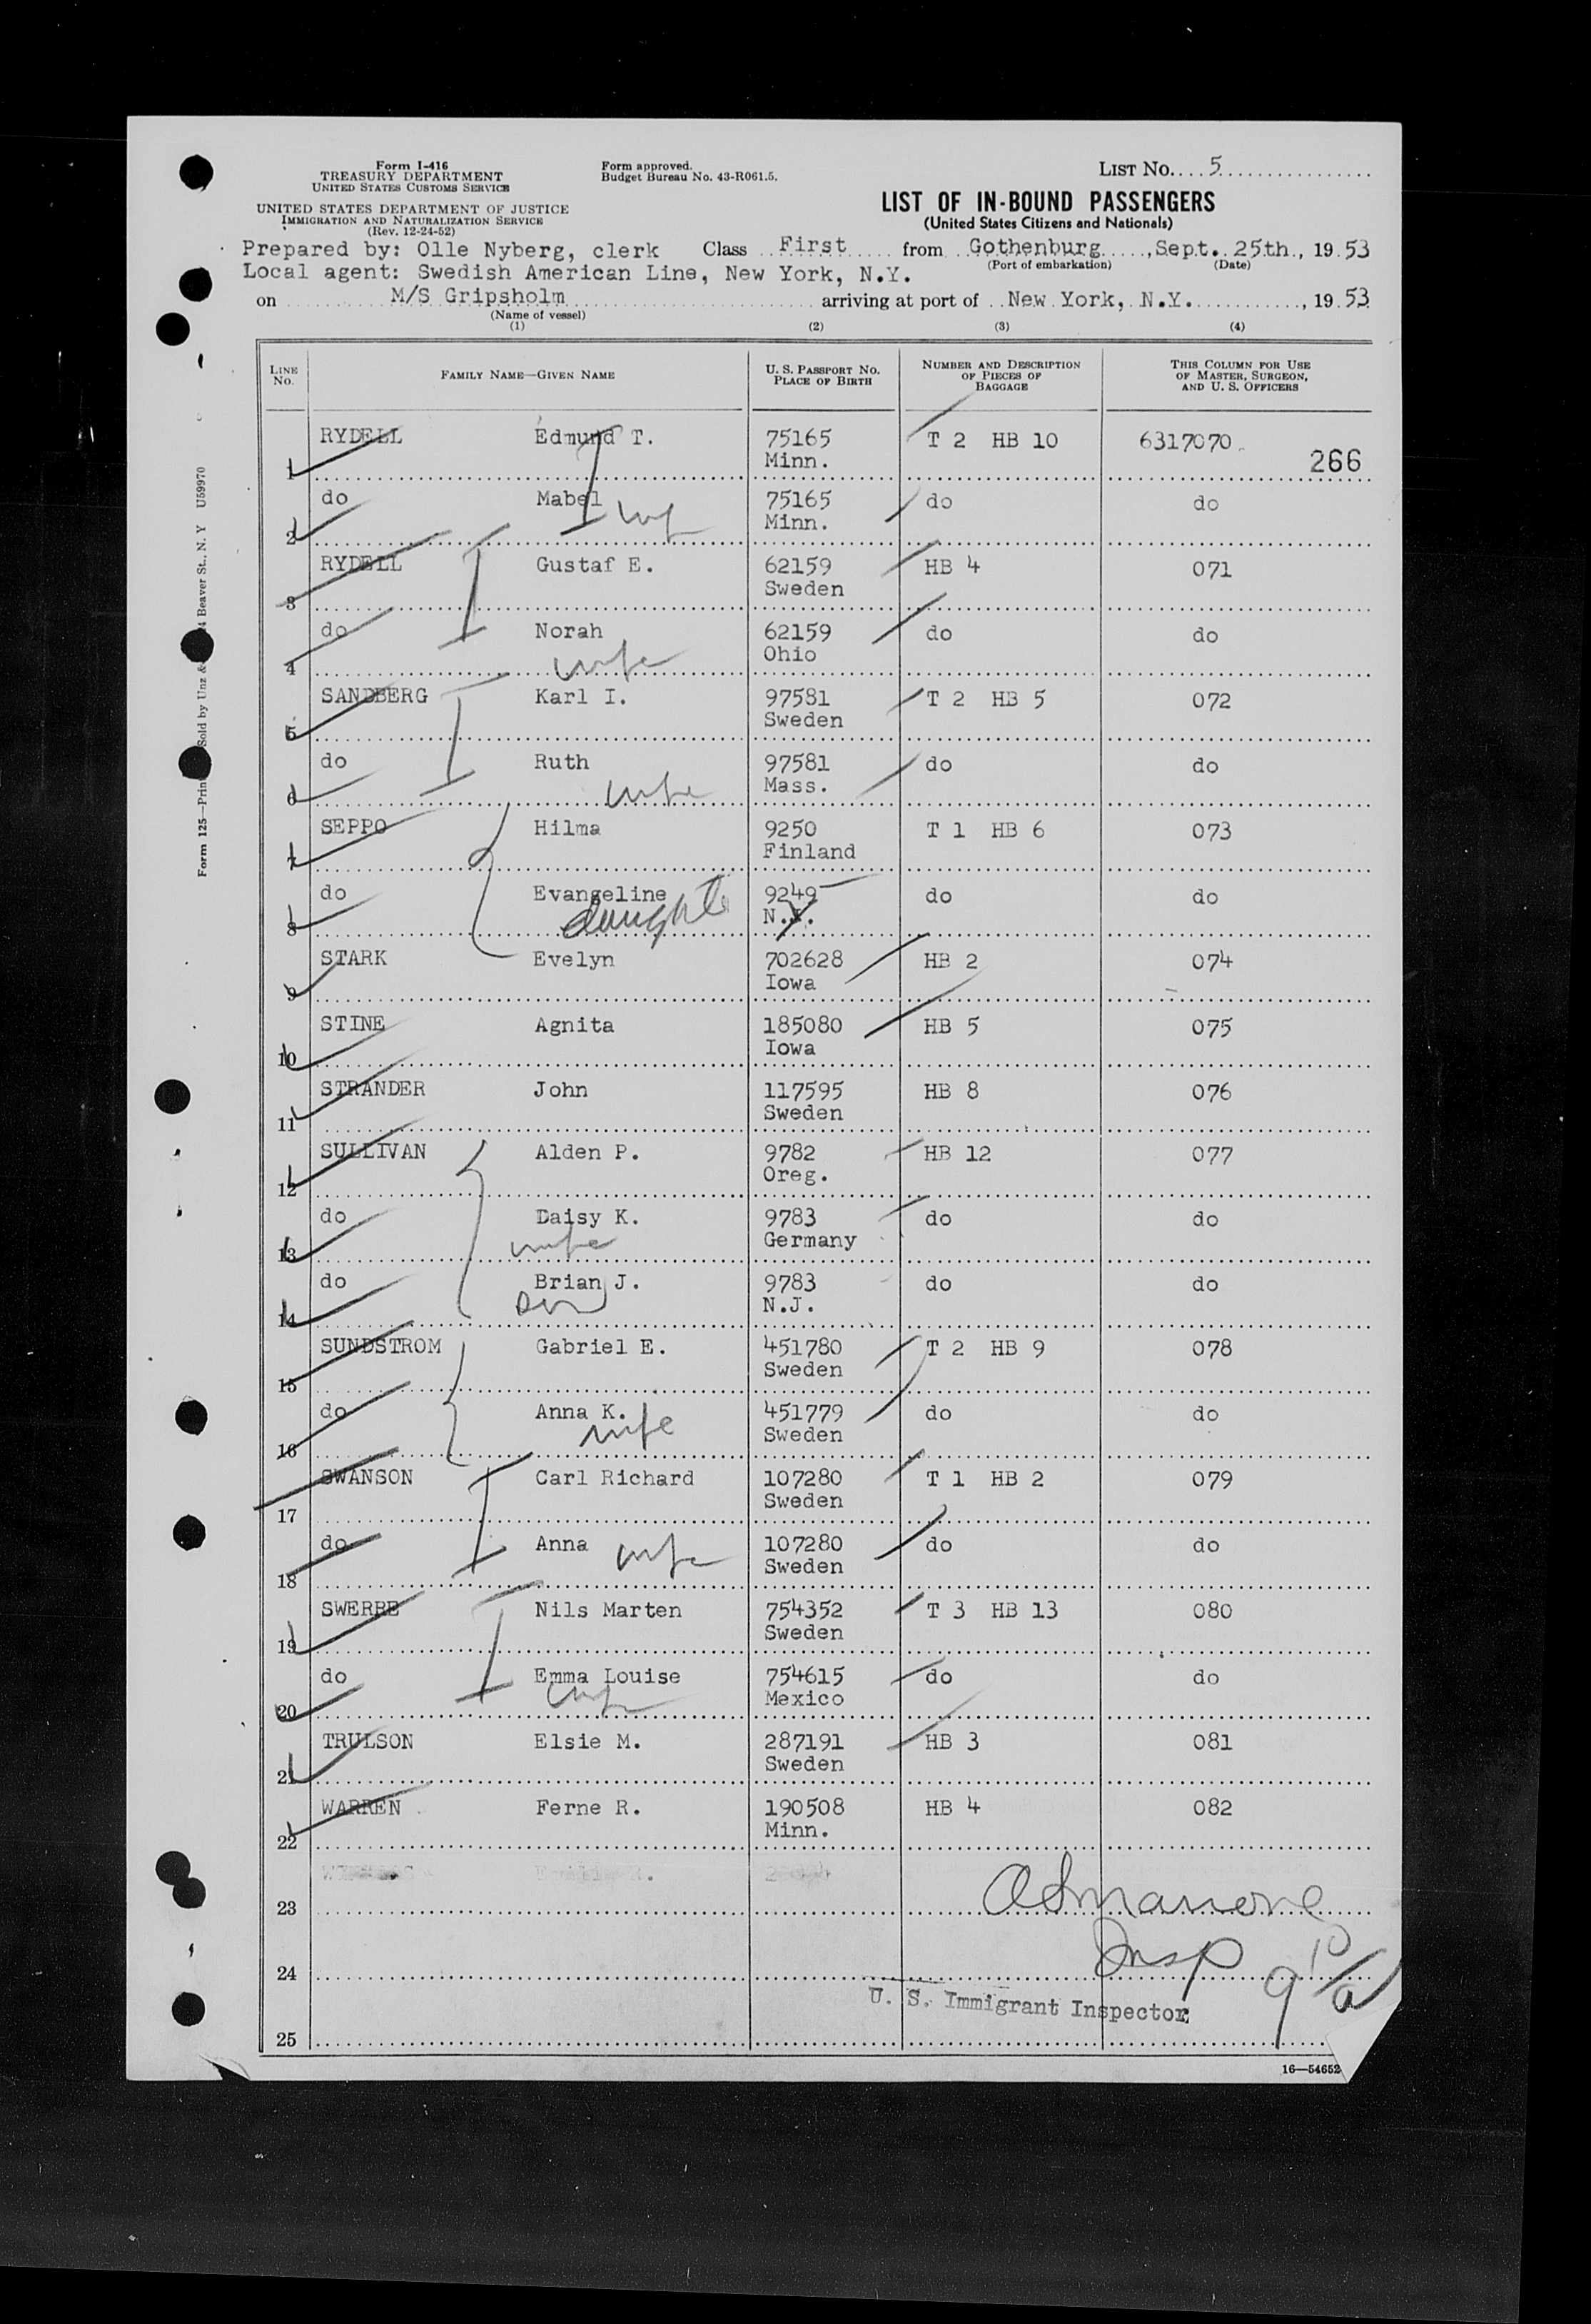 Form I-416
TREASURY DEPARTMENT
UNITED STATES CUSTOMS SERVICE
UNITED STATES DEPARTMENT OF JUSTICE
IMMIGRATION AND NATURALIZATION SERVICE
(Rev. 12-24-52)
Form approved.
Budget Bureau No. 43-R061.5.
LIST No. 5
LIST OF IN-BOUND PASSENGERS
(United States Citizens and Nationals)
Prepared by: Olle Nyberg, clerk Class First from Gothenburg, Sept. 25th., 1953
(Port of embarkation) (Date)
Local agent: Swedish American Line, New York, N.Y.
on M/S Gripsholm arriving at port of New York, N.Y., 1953
(Name of vessel)
(1) (2) (3) (4)
LINE No. FAMILY NAME—GIVEN NAME U. S. PASSPORT No. PLACE OF BIRTH NUMBER AND DESCRIPTION OF PIECES OF BAGGAGE THIS COLUMN FOR USE OF MASTER, SURGEON, AND U. S. OFFICERS
RYDELL Edmund T. 75165 T 2 HB 10 6317070
1 Minn. 266
do Mabel 75165 do do
2 wife Minn.
RYDELL Gustaf E. 62159 HB 4 071
3 Sweden
do Norah 62159 do do
4 wife Ohio
SANDBERG Karl I. 97581 T 2 HB 5 072
5 Sweden
do Ruth 97581 do do
6 wife Mass.
SEPPO Hilma 9250 T 1 HB 6 073
7 Finland
do Evangeline 9249 do do
8 daughter
STARK Evelyn 702628 HB 2 074
9 Iowa
STINE Agnita 185080 HB 5 075
10 Iowa
STRANDER John 117595 HB 8 076
11 Sweden
SULLIVAN Alden P. 9782 HB 12 077
12 Oreg.
do Daisy K. 9783 do do
13 wife Germany
do Brian J. 9783 do do
14 son N.J.
SUNDSTROM Gabriel E. 451780 T 2 HB 9 078
15 Sweden
do Anna K. 451779 do do
16 wife Sweden
SWANSON Carl Richard 107280 T 1 HB 2 079
17 Sweden
do Anna wife 107280 do do
18 Sweden
SWERRE Nils Marten 754352 T 3 HB 13 080
19 Sweden
do Emma Louise 754615 do do
20 wife Mexico
TRULSON Elsie M. 287191 HB 3 081
21 Sweden
WARREN Ferne R. 190508 HB 4 082
22 Minn.
23
24 Insp
U. S. Immigrant Inspector
25
16—54652
Beaver St., N. Y U59970
Form 125—Sold by Unz &